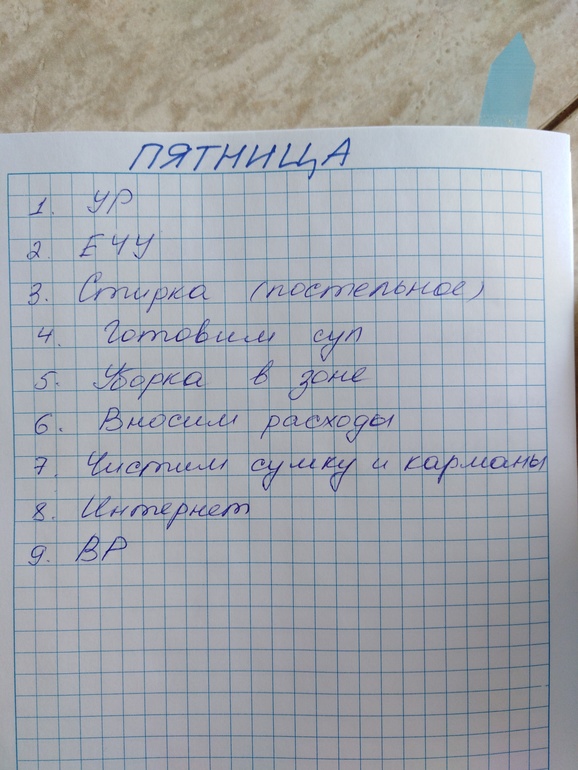 ПЯТНИЦА
1. УР
2. ЕЧУ
3. Стирка (постельное)
4. Готовим суп
5. Уборка в зоне
6. Вносим расходы
7. Чистим сумку и карманы
8. Интернет
9. ВР